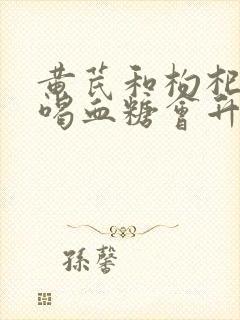 黄芪和枸杞
喝血糖會升
孫馨